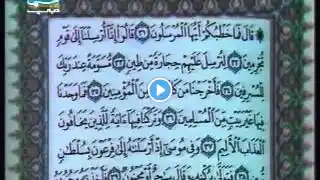 قَالَ فَمَا خَطْبُكُمْ أَيُّهَا الْمُرْسَلُونَ ﴿٣١﴾ قَالُوا إِنَّا أُرْسِلْنَا إِلَىٰ قَوْمٍ
مُّجْرِمِينَ ﴿٣٢﴾ لِنُرْسِلَ عَلَيْهِمْ حِجَارَةً مِّن طِينٍ ﴿٣٣﴾ مُّسَوَّمَةً عِندَ رَبِّكَ
لِلْمُسْرِفِينَ ﴿٣٤﴾ فَأَخْرَجْنَا مَن كَانَ مِنَ الْمُؤْمِنِينَ ﴿٣٥﴾ فَمَا وَجَدْنَا
فِيهَا غَيْرَ بَيْتٍ مِّنَ الْمُسْلِمِينَ ﴿٣٦﴾ وَتَرَكْنَا فِيهَا ءَايَةً لِّلَّذِينَ يَخَافُونَ
الْعَذَابَ الْأَلِيمَ ﴿٣٧﴾ وَفِي مُوسَىٰ إِذْ أَرْسَلْنَٰهُ إِلَىٰ فِرْعَوْنَ بِسُلْطَٰنٍ
فَتَوَلَّىٰ بِرُكْنِهِ وَقَالَ سَٰحِرٌ أَوْ مَجْنُونٌ